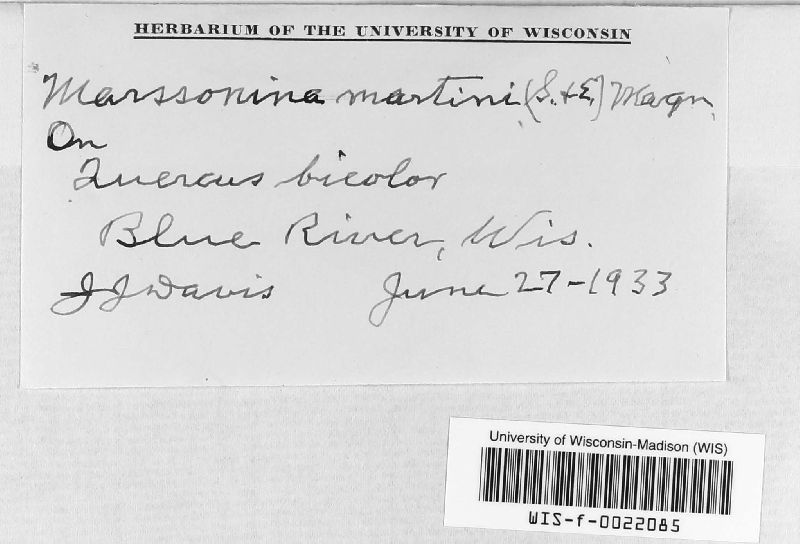 HERBARIUM OF THE UNIVERSITY OF WISCONSIN
Marssonina martini (S. & E.) Magn.
On
Quercus bicolor
Blue River, Wis.
J J Davis June 27-1933
University of Wisconsin-Madison (WIS)
WIS-f-0022085